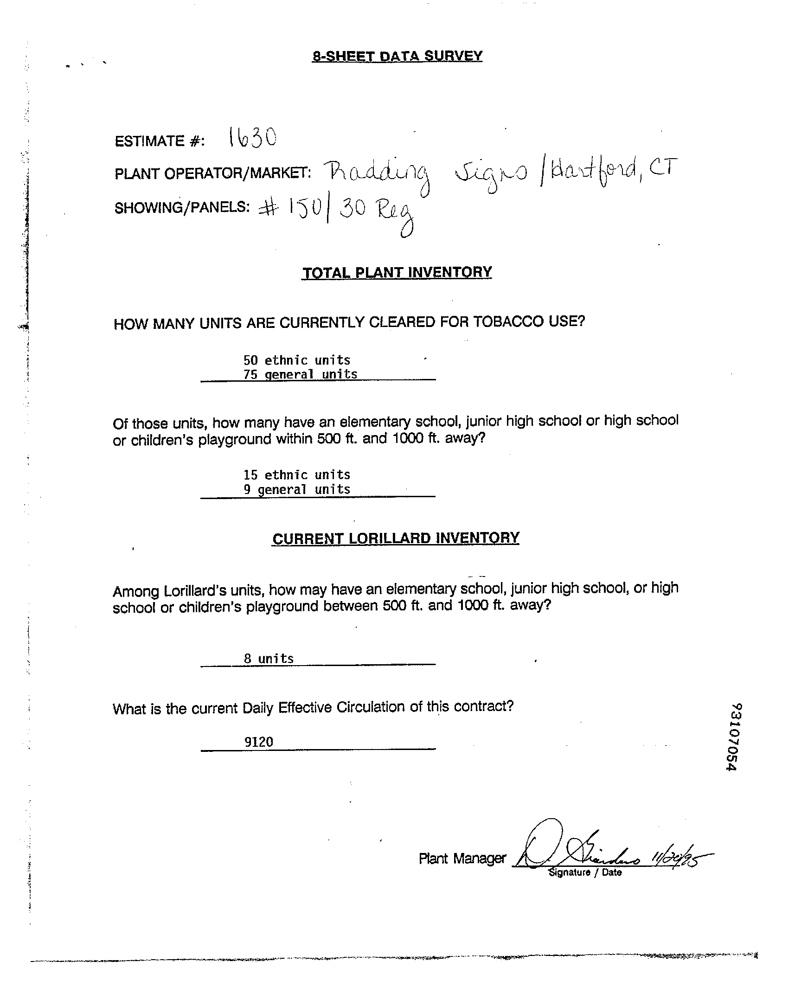 8-SHEET DATA SURVEY
ESTIMATE #: 1630
PLANT OPERATOR/MARKET: Radding Signs / Hartford, CT
SHOWING/PANELS: # 150 / 30 Reg
TOTAL PLANT INVENTORY
HOW MANY UNITS ARE CURRENTLY CLEARED FOR TOBACCO USE?
50 ethnic units
75 general units
Of those units, how many have an elementary school, junior high school or high school
or children's playground within 500 ft. and 1000 ft. away?
15 ethnic units
9 general units
CURRENT LORILLARD INVENTORY
Among Lorillard's units, how may have an elementary school, junior high school, or high
school or children's playground between 500 ft. and 1000 ft. away?
8 units
What is the current Daily Effective Circulation of this contract?
9120
93107054
Plant Manager D.
Signature / Date